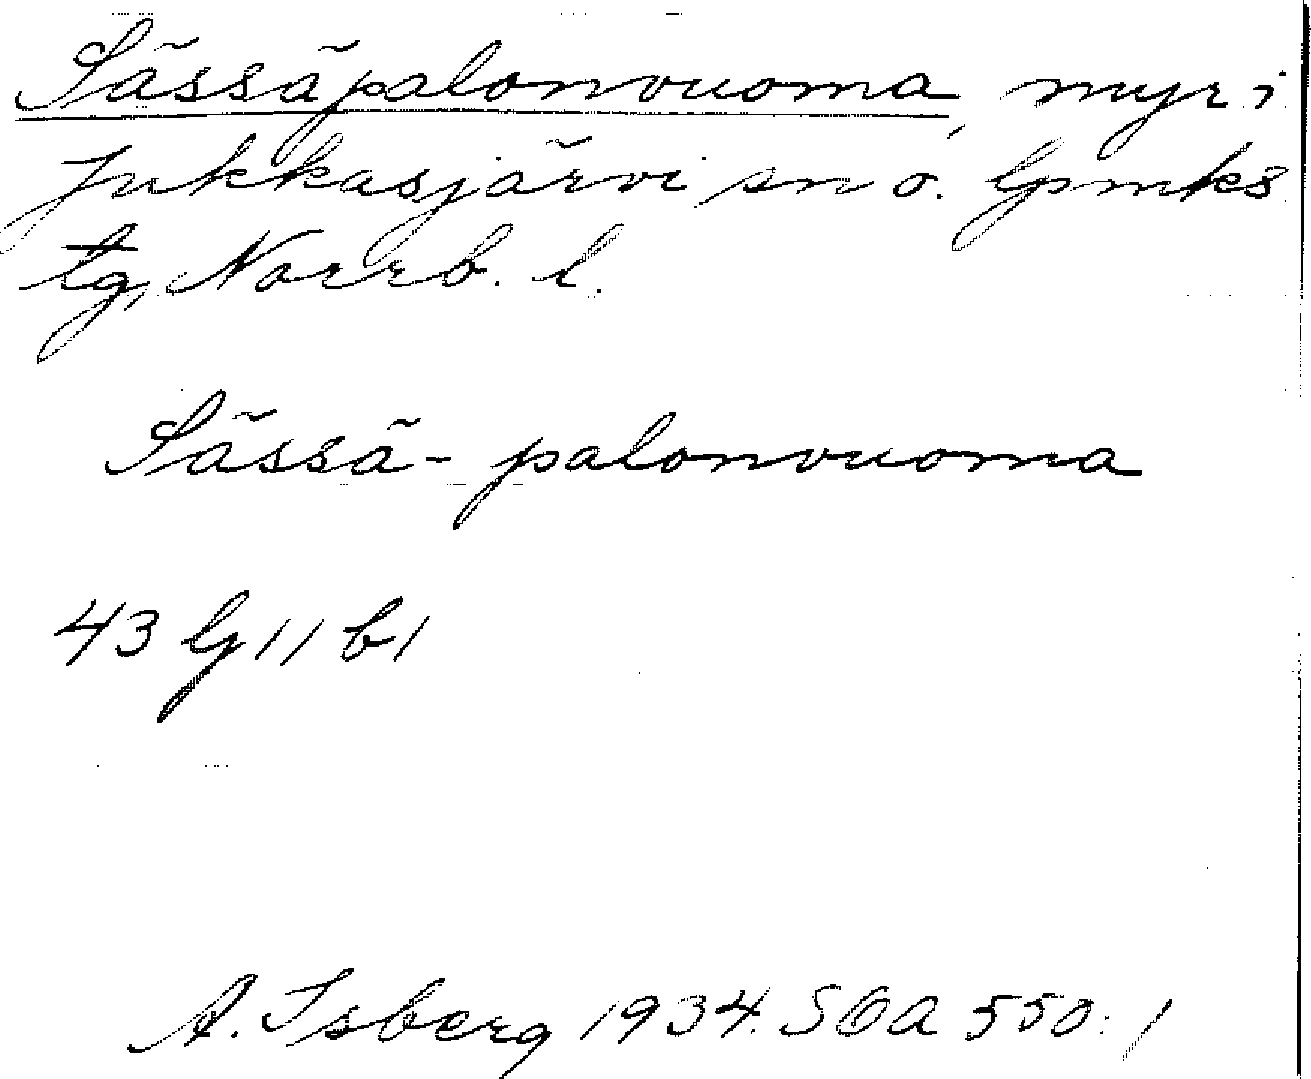 Sässäpalonvuoma, myr i
Jukkasjärvi sn o. Gpmks
tg, Norrb. l.
Sässä- palonvuoma
43 G 11 b 1
A. Isberg 1934. SOA 550:1